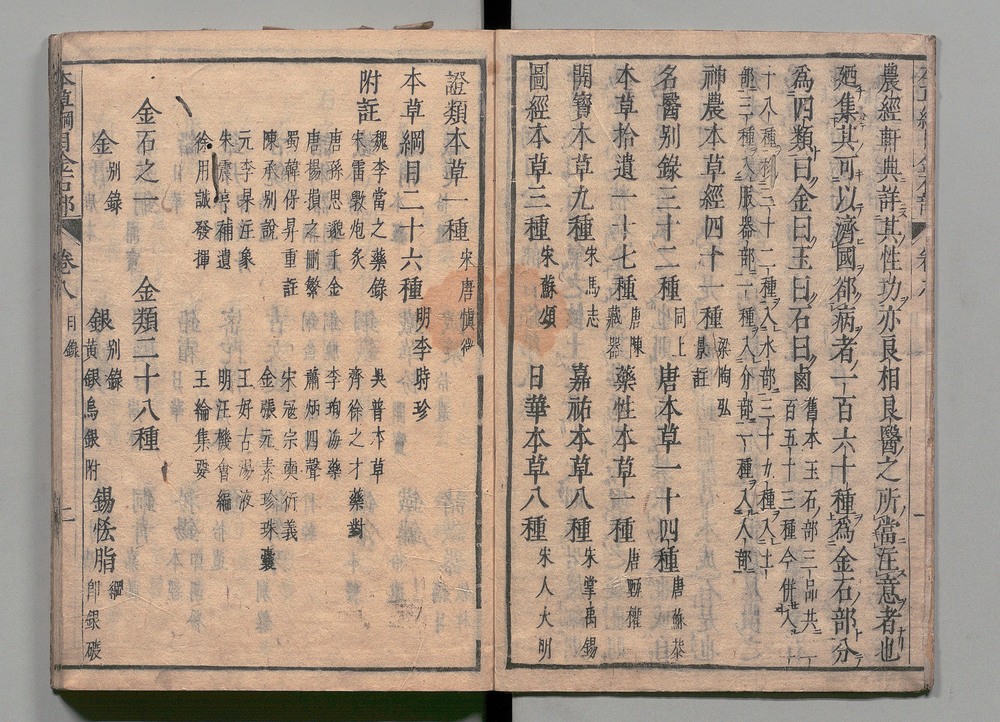 農經軒典詳其性功亦良相良醫之所當注意者也
廼集其可以濟國卻病者一百六十一種為金石部分
為四類曰金曰玉曰石曰鹵 舊本玉石部三品共二百五十三種今併入二
十八種移三十二種入水部三十九種入土
部三種入服器部一種入介部一種入人部
神農本草經四十一種 梁陶弘景註
名醫別錄三十二種 同上 唐本草一十四種 唐蘇恭
本草拾遺一十七種 唐陳藏器 藥性本草一種 唐甄權
開寶本草九種 宋馬志 嘉祐本草八種 宋掌禹錫
圖經本草三種 宋蘇頌 日華本草八種 宋人大明
證類本草一種 宋唐慎微
本草綱目二十六種 明李時珍
附註 魏李當之藥錄 吳普本草
宋雷斅炮炙 齊徐之才藥對
唐孫思邈千金 李珣海藥
唐楊損之刪繁 蕭炳四聲
蜀韓保昇重註 宋寇宗奭衍義
陳承別說 金張元素珍珠囊
元李杲法象 王好古湯液
朱震亨補遺 明汪機會編
徐用誠發揮 王綸集要
金石之一 金類二十八種
金 別錄 銀 別錄 黃銀烏銀附 錫恡脂 綱目 即銀礦
本草綱目金石部 卷八 目錄 一